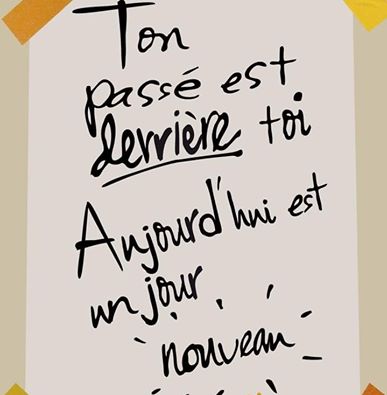 Ton
passé est
derrière toi
Aujourd'hui est
un jour
nouveau